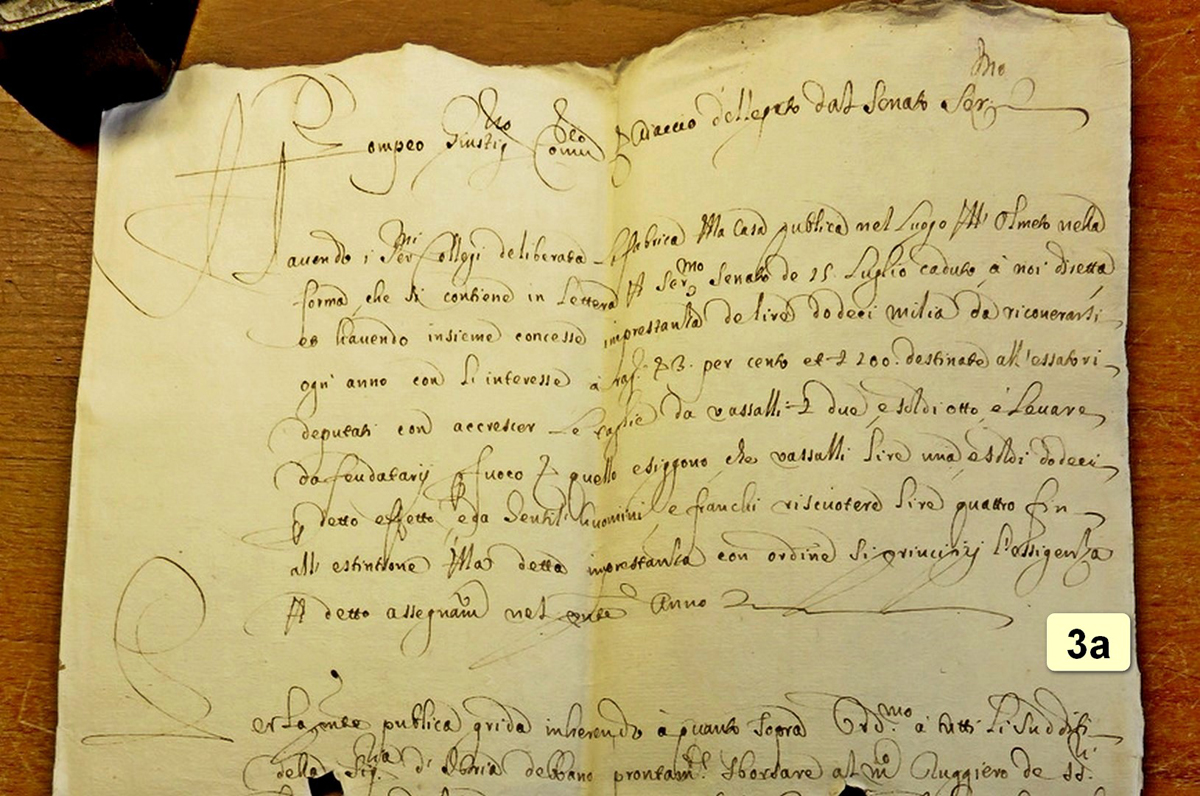 Pompeo Giustin.no Com.rio d'Aiaccio dellegato dal Senato Ser.mo
Hauendo i Ser.mi Collegi deliberata la fabrica della Casa publica nel Luogo dell' Olmeto nella
forma che si contiene in lettera del Ser.mo Senato de 15 Luglio caduto à noi diretta
et hauendo insieme concesso imprestanza de lire dodeci milia da ricouerarsi
ogni anno con li interesse à rag. di 3. per cento et £ 200. destinate all' essatori
deputati con accrescer le taglie da vassalli £ due, e soldi otto è leuare
da feudatarij fuoco quello esiggono che vassalli lire una, e soldi dodeci
detto effetto, e da Gentil'huomini, e franchi riscuotere lire quattro fin
all' estintione della detta imprestanza con ordine si principij l'essigenza
del detto assegnam.to nel pnte Anno
Per la pnte publica grida inherendo à quanto sopra Ord.mo à tutti li sudditi
della Sig.ria d'Istria debbano prontam.te sborsare al m.co Ruggiero de
3a